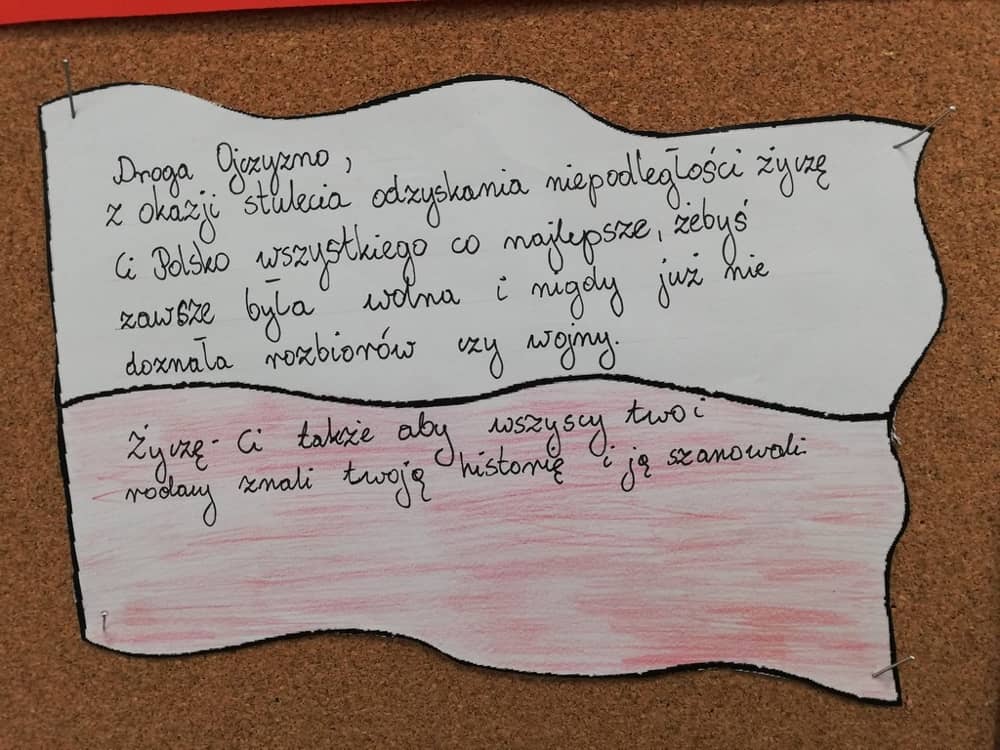 Droga Ojczyzno,
z okazji stulecia odzyskania niepodległości życzę
Ci Polsko wszystkiego co najlepsze, żebyś
zawsze była wolna i nigdy już nie
doznała rozbiorów czy wojny.
Życzę Ci także aby wszyscy twoi
rodacy znali twoją historię i ją szanowali.